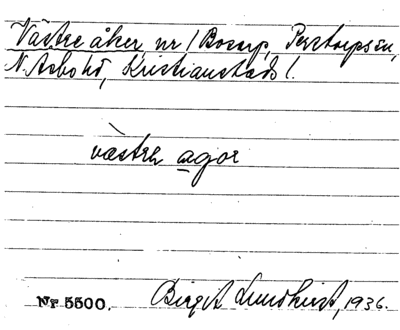 Västre åker nr 1 Bosarp, Perstorps sn,
N. Åsbo hd, Kristianstads l.
västrē agor
Nr 5500. Birgit Lundkvist, 1936.